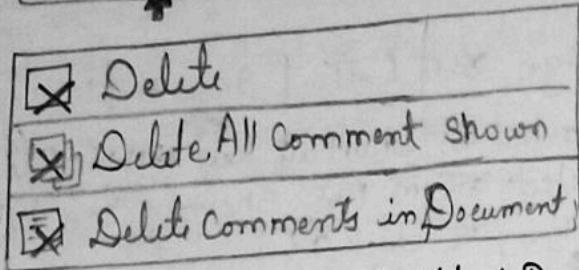 Delete
Delete All Comment shown
Delete Comments in Document